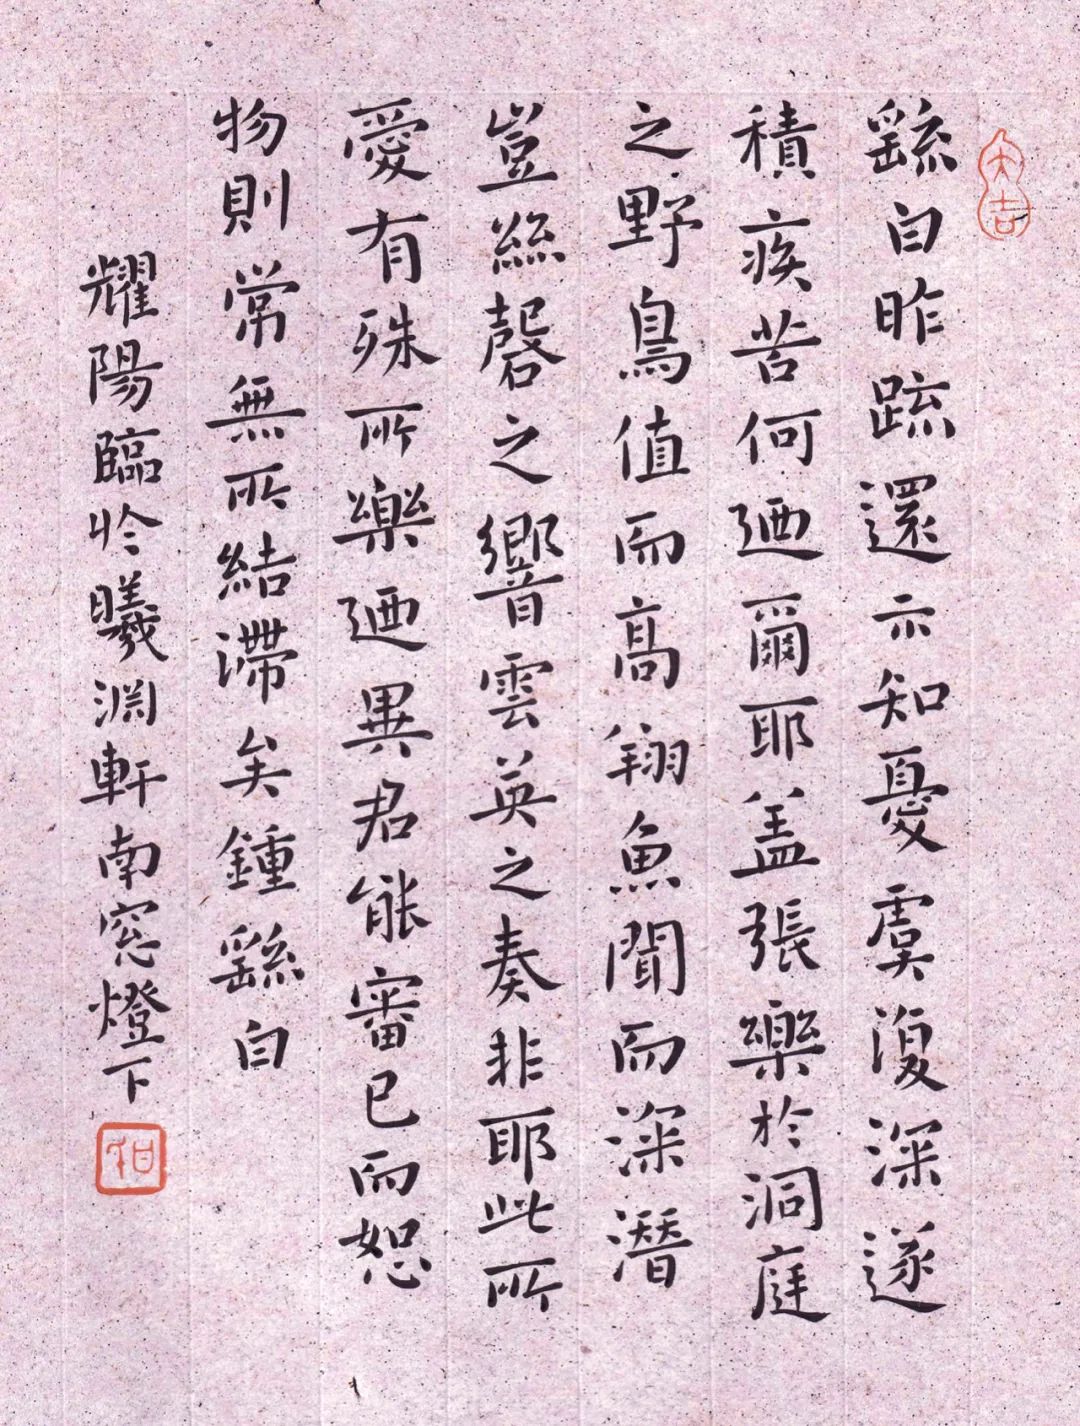 大吉
繇白昨疏還示知憂虞復深遂
積疾苦何迺爾耶盖張樂於洞庭
之野鳥值而高翔魚聞而深潛
豈絲磬之響雲英之奏非耶此所
愛有殊所樂迺異君能審己而恕
物則常無所結滯矣鍾繇白
耀陽臨於曦淵軒南窓燈下